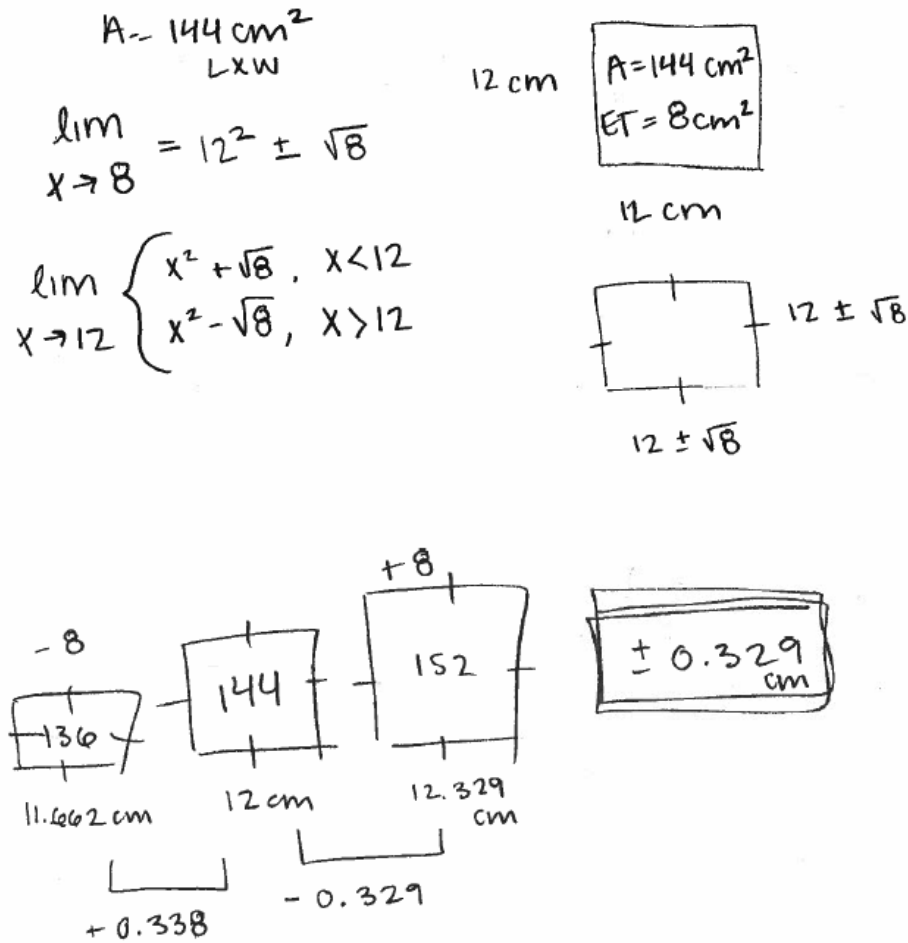 A = 144 cm²
L x W
lim x → 8 = 12² ± √8
lim x → 12 { x² + √8, x < 12
x² - √8, x > 12
12 cm
A = 144 cm²
ET = 8 cm²
12 cm
12 ± √8
12 ± √8
- 8
136
11.662 cm
144
12 cm
+ 8
152
12.329 cm
+ 0.338
- 0.329
± 0.329 cm